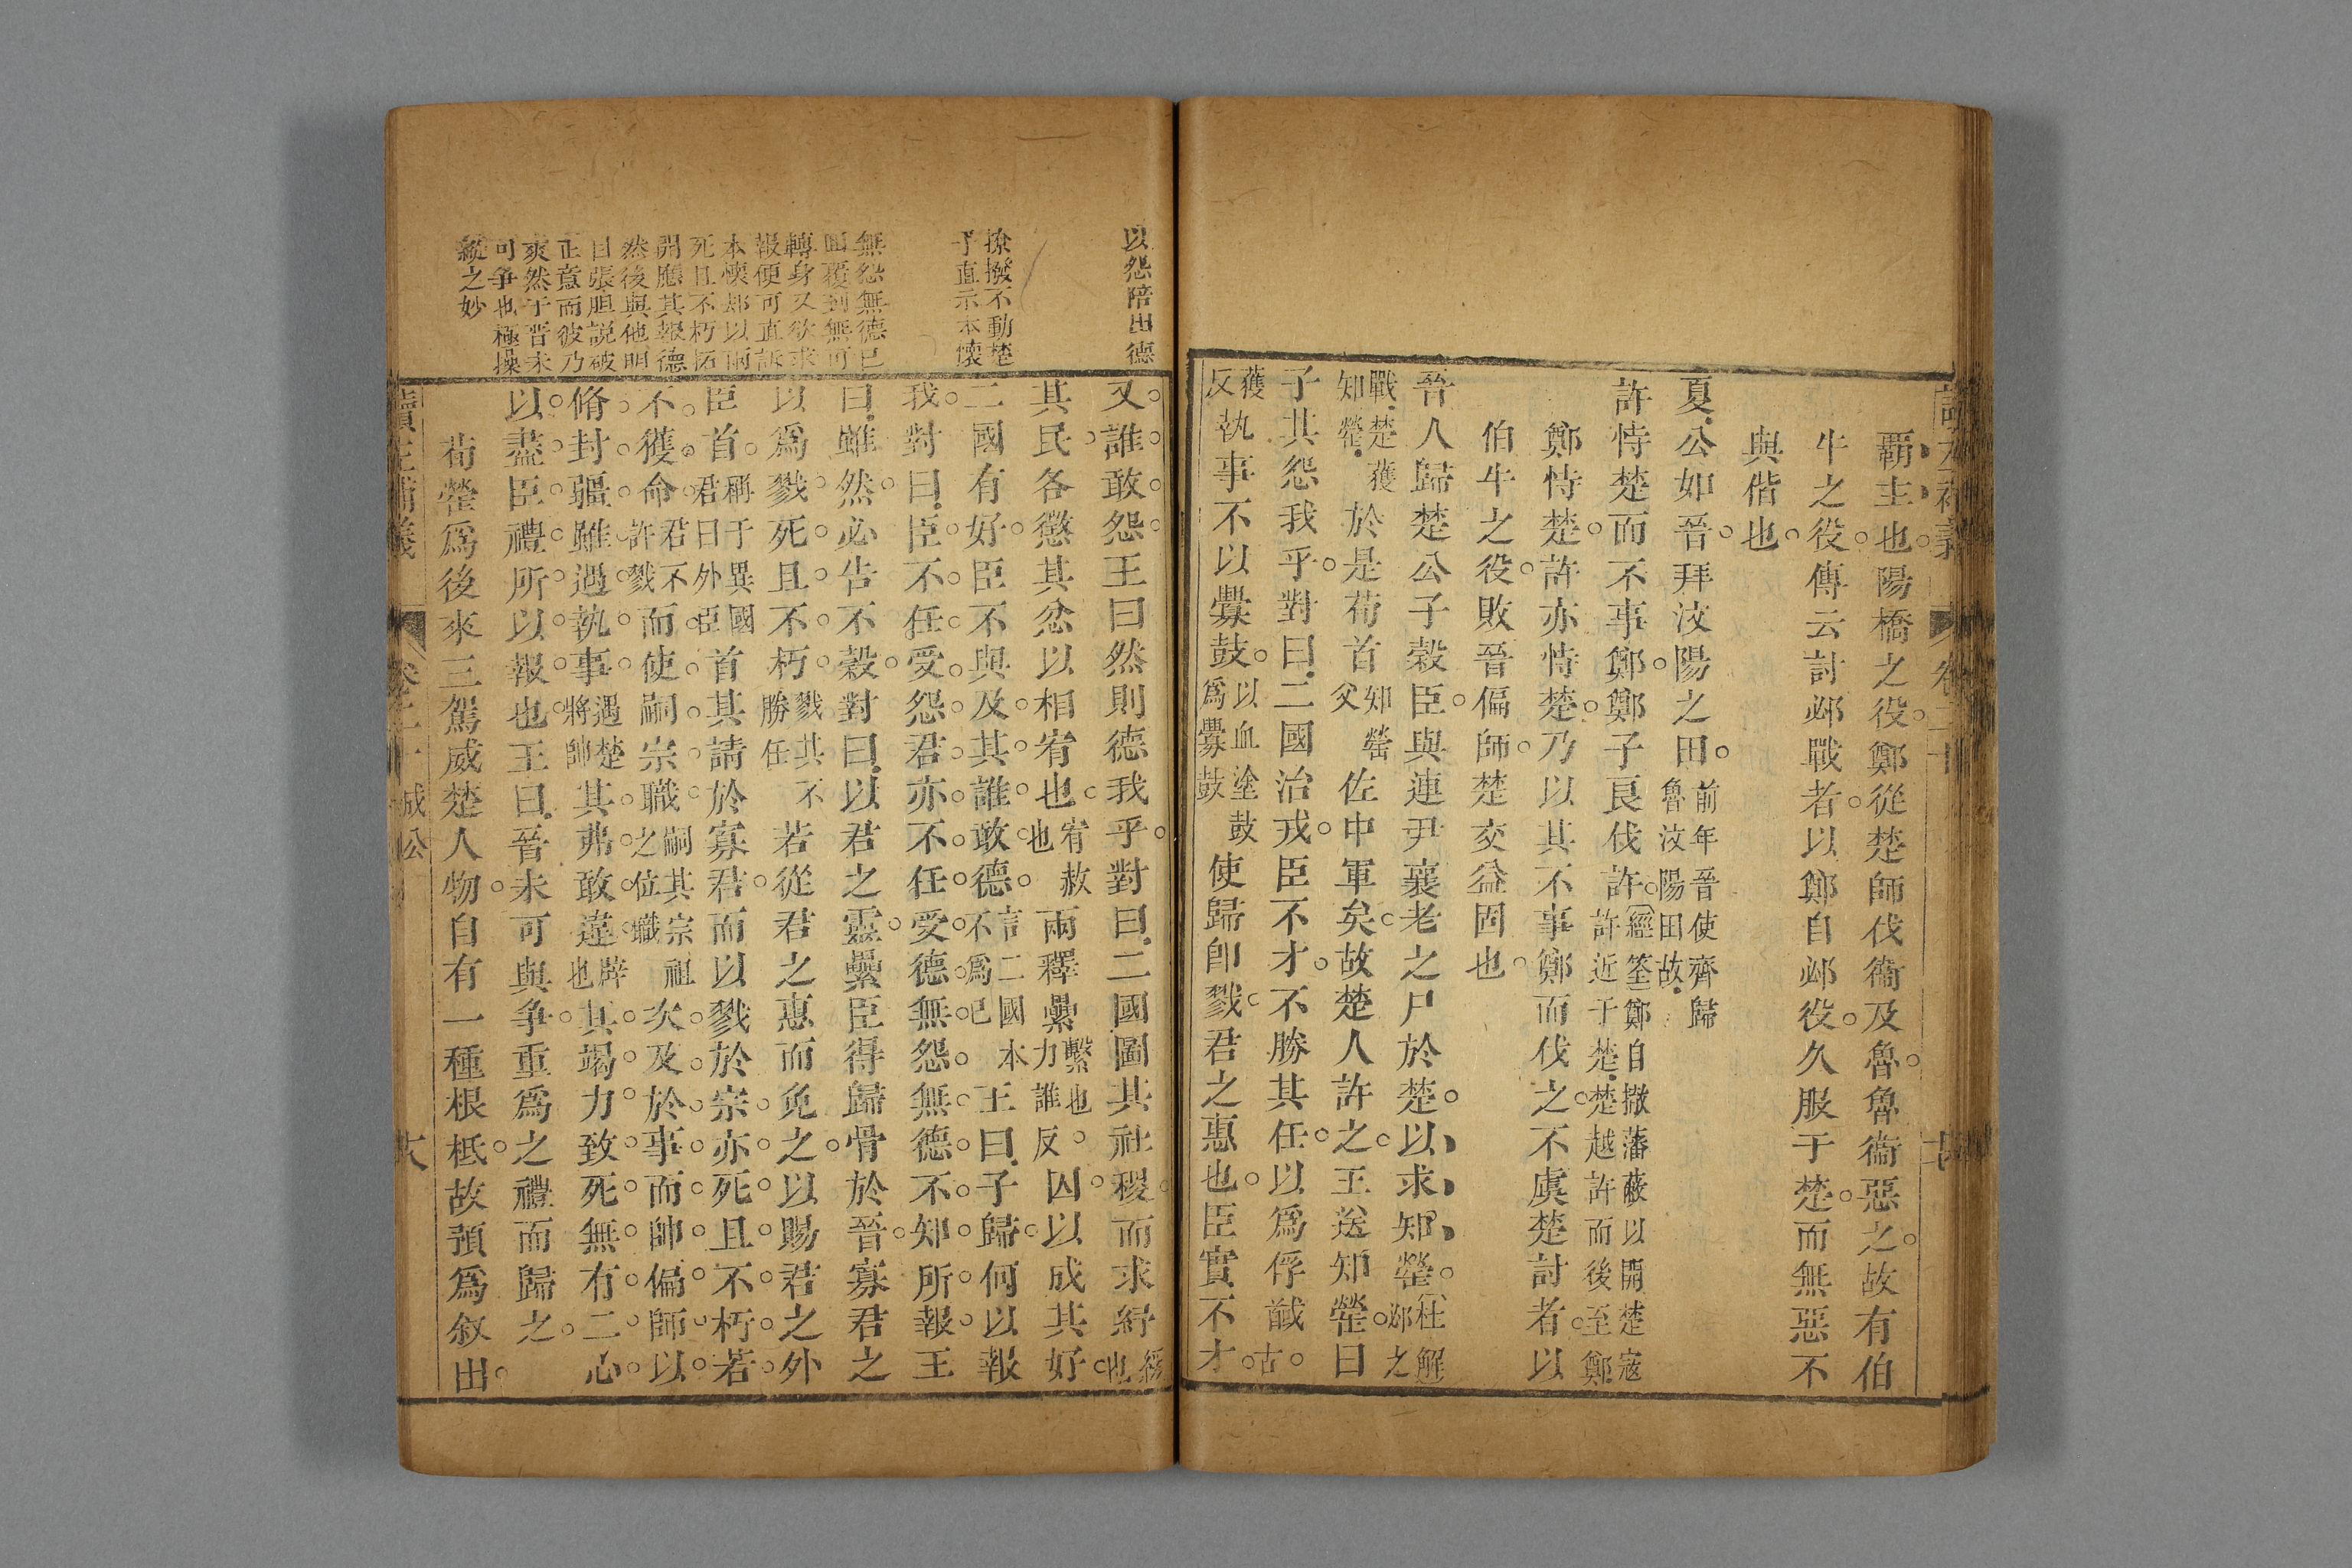 讀左補義 卷二十 十七
霸主也陽橋之役鄭從楚師伐衞及魯魯衞惡之故有伯
牛之役傳云討邲戰者以鄭自邲役久服于楚而無惡不
與偕也
夏公如晉拜汶陽之田前年晉使齊歸魯汶陽田故
許恃楚而不事鄭鄭子良伐許經筌鄭自撤藩蔽以開楚寇許近于楚楚越許而後至鄭
鄭恃楚許亦恃楚乃以其不事鄭而伐之不虞楚討者以
伯牛之役敗晉偏師楚交益固也
晉人歸楚公子穀臣與連尹襄老之尸於楚以求知罃杜解邲之
戰楚獲知罃於是荀首知罃父佐中軍矣故楚人許之王送知罃曰
子其怨我乎對曰二國治戎臣不才不勝其任以爲俘馘古
獲反執事不以釁鼓以血塗鼓爲釁鼓使歸卽戮君之惠也臣實不才
以怨陪出德
撩撥不動楚
子直示本懷
無怨無德已
回覆到無可
轉身又欲求
報便可直訴
本懷却以兩
死且不朽拓
開應其報德
然後與他明
目張胆說破
正意而彼乃
爽然于晉未
可爭也極操
縱之妙
又誰敢怨王曰然則德我乎對曰二國圖其社稷而求紓緩也
其民各懲其忿以相宥也宥赦也兩釋纍繫也力誰反囚以成其好
二國有好臣不與及其誰敢德言二國本不爲已王曰子歸何以報
我對曰臣不任受怨君亦不任受德無怨無德不知所報王
曰雖然必告不穀對曰以君之靈纍臣得歸骨於晉寡君之
以爲戮死且不朽戮其不勝任若從君之惠而免之以賜君之外
臣首稱于異國君曰外臣首其請於寡君而以戮於宗亦死且不朽若
不獲命君不許戮而使嗣宗職嗣其宗祖之位職次及於事而帥偏師以
脩封疆雖遇執事遇楚將帥其弗敢違辟也其竭力致死無有二心
以盡臣禮所以報也王曰晉未可與爭重爲之禮而歸之
荀罃爲後來三駕威楚人物自有一種根柢故預爲敘出
讀左補義 卷二十 成公 十八